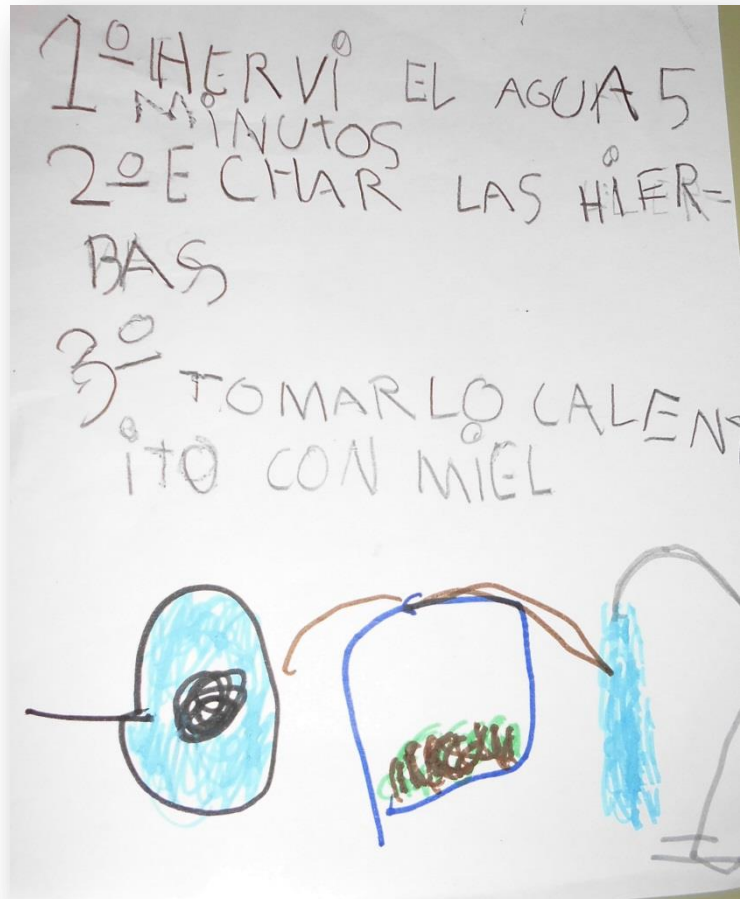 1º HERVI EL AGUA 5
MINUTOS
2º ECHAR LAS HIER-
BAS
3º TOMARLO CALENT
ITO CON MIEL